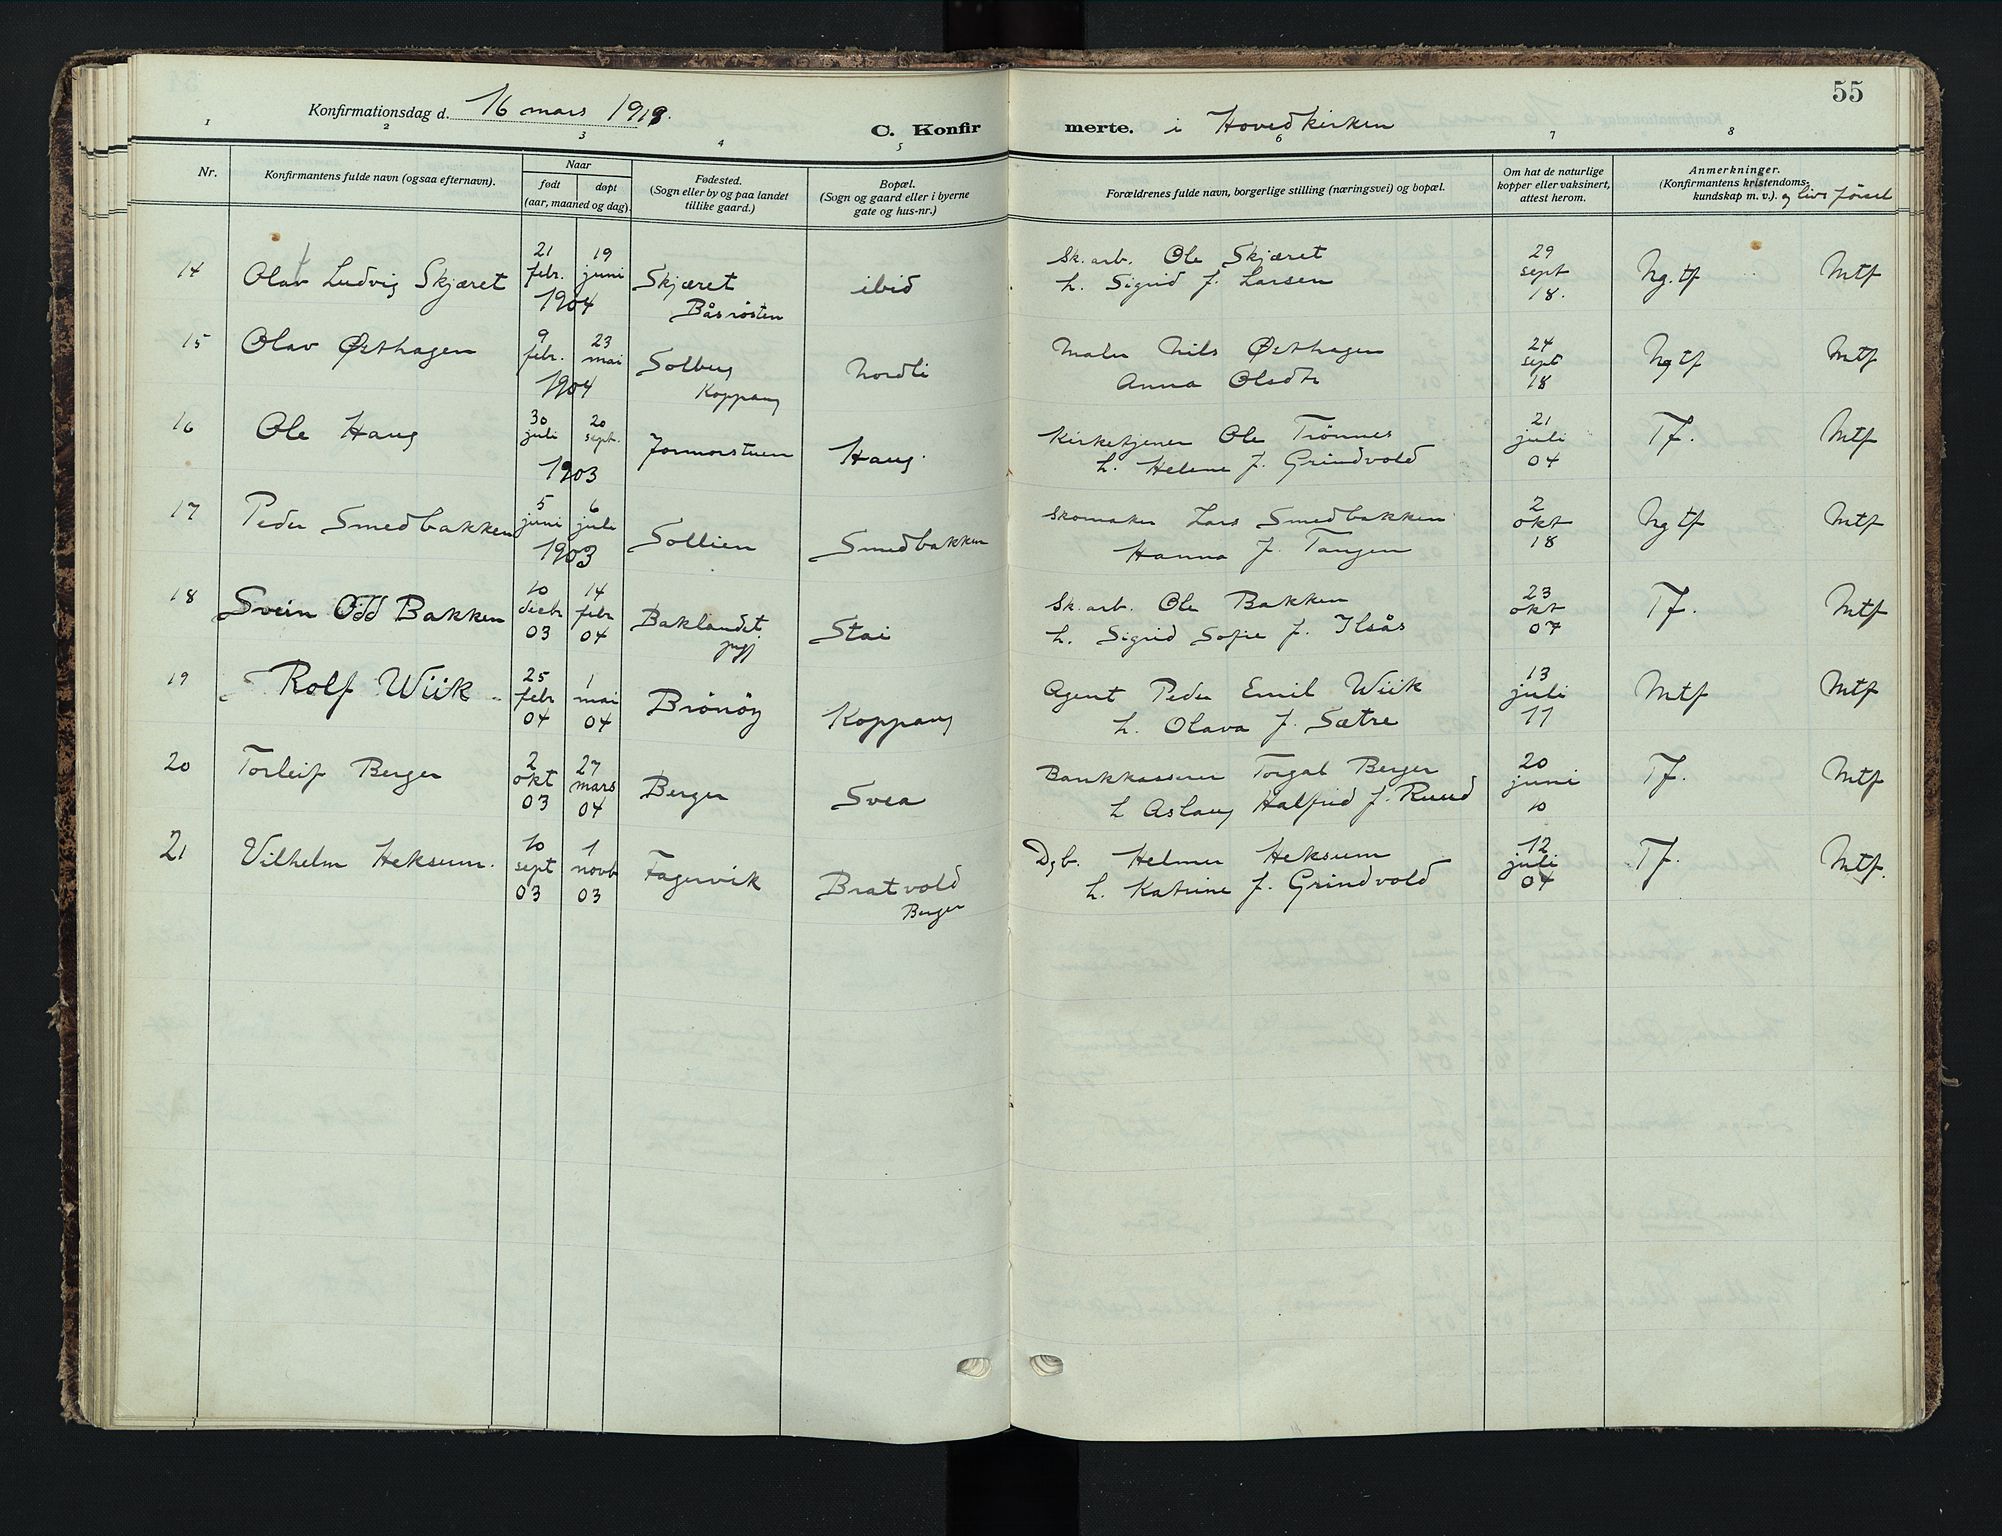 55
Konfirmationsdag d. 16 mars 1919.
C. Konfirmerte. i Hovedkirken
1 2 3 4 5 6 7 8
Nr.
Konfirmantens fulde navn (ogsaa efternavn).
Naar
født døpt
(aar, maaned og dag).
Fødested.
(Sogn eller by og paa landet
tillike gaard.)
Bopæl.
(Sogn og gaard eller i byerne
gate og hus-nr.)
Forældrenes fulde navn, borgerlige stilling (næringsvei) og bopæl.
Om hat de naturlige
kopper eller vaksinert,
attest herom.
Anmerkninger.
(Konfirmantens kristendoms-
kundskap m. v.). og livsførsel
14 Olav Ludvig Skjæret 21 febr. 19 juni 1904 Skjæret Båsrösten ibid Sk. arb. Ole Skjæret
h. Sigrid f. Larsen 29 sept 18. Ng. tf Mtf
15 Olav Østhagen 9 febr. 23 mai 1904 Solberg Koppang Nordli Maler Nils Østhagen
Anna Olsdtr 24 sept 18 Ng tf Mtf
16 Ole Haug 30 juli 20 sept. 1903 Jormorstuen Haug Kirketjener Ole Trönnes
h. Helene f. Grindvold 21 juli 04 Tf. Mtf
17 Peder Smedbakken 5 juni 6 juli 1903 Sollien Smedbakken Skomaker Lars Smedbakken
Hanna f. Tangen 2 okt 18 Ng tf Mtf
18 Svein Odd Bakken 10 decbr 03 14 febr 04 Baklandet Stai Sk. arb. Ole Bakken
h. Sigrid Sofie f. Ilsås 23 okt 07 Tf. Mtf
19 Rolf Wiik 25 febr 04 1 mai 04 Brönöy Koppang Agent Peder Emil Wiik
h. Olava f. Sætre 13 juli 11 Mtf Mtf
20 Torleif Berger 2 okt 03 27 mars 04 Berger Svea Bankkasserer Torgal Berger
h Aslaug Halfrid f. Ruud 20 juni 10 Tf. Mtf
21 Vilhelm Heksum. 10 sept 03 1 novb 03 Fagervik Bratvold Berger Dgb. Helmer Heksum
h. Katrine f. Grindvold 12 juli 04 Tf. Mtf.